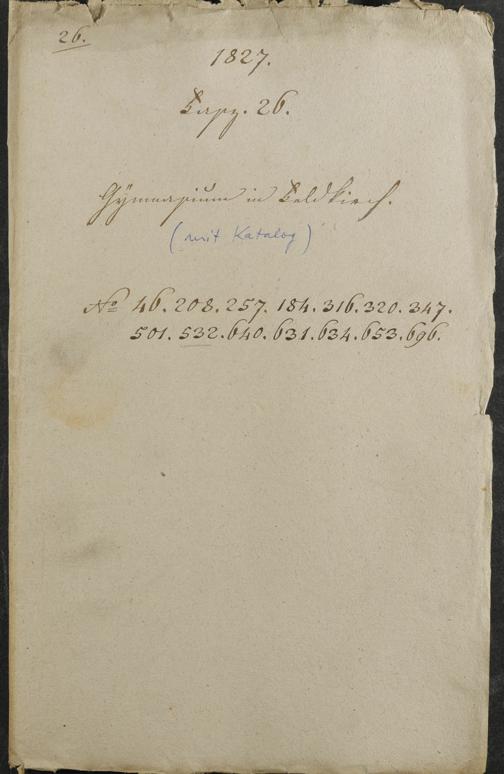 26.
1827.
Fasz. 26.
Gymnasium in Feldkirch.
(mit Katalog)
No 46. 208. 257. 184. 316. 320. 347.
501. 532. 640. 631. 634. 653. 696.